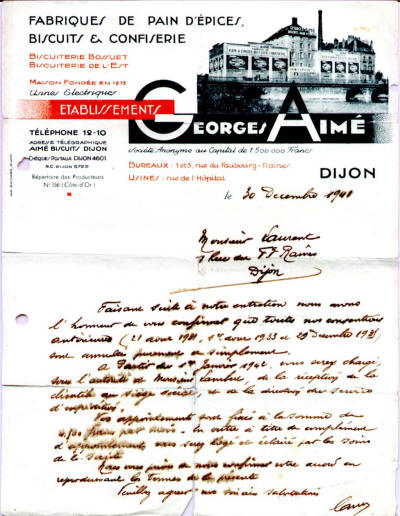 FABRIQUES DE PAIN D'ÉPICES,
BISCUITS & CONFISERIE
BISCUITERIE BOSSUET
BISCUITERIE DE L'EST
MAISON FONDÉE EN 1813
Usines Electriques
ETABLISSEMENTS
GEORGES AIMÉ
Société Anonyme au Capital de 1.500.000 Francs
TÉLÉPHONE 12-10
ADRESSE TÉLÉGRAPHIQUE
AIMÉ BISCUITS DIJON
CHÈQUES POSTAUX DIJON 4601
R.C. DIJON
Répertoire des Producteurs
N° 156 (Côte-d'Or)
BUREAUX: 1 et 3, rue du Faubourg-Raines
USINES: rue de l'Hôpital
DIJON
le 30 Decembre 1941
Monsieur Laurent
1 Rue du Fg Raines
Dijon
Faisant suite à notre entretien nous avons
l'honneur de vous confirmer que toutes nos conventions
antérieures (21 aout 1931, 1er aout 1933 et 29 Decembre
sont annulées purement et simplement.
A Partir du 1er Janvier 1942, vous serez chargé
sous l'autorité de Monsieur Lambert, de la réception de la
clientèle au siège social et de la direction des services
d'expédition.
Vos appointements sont fixés à la somme de
francs par mois. En outre à titre de complément
d'appointement vous serez logé et éclairé par les soins
de la Société
Nous vous prions de nous confirmer votre accord en
reproduisant les termes de la présente
Veuillez agréer nos sincères salutations